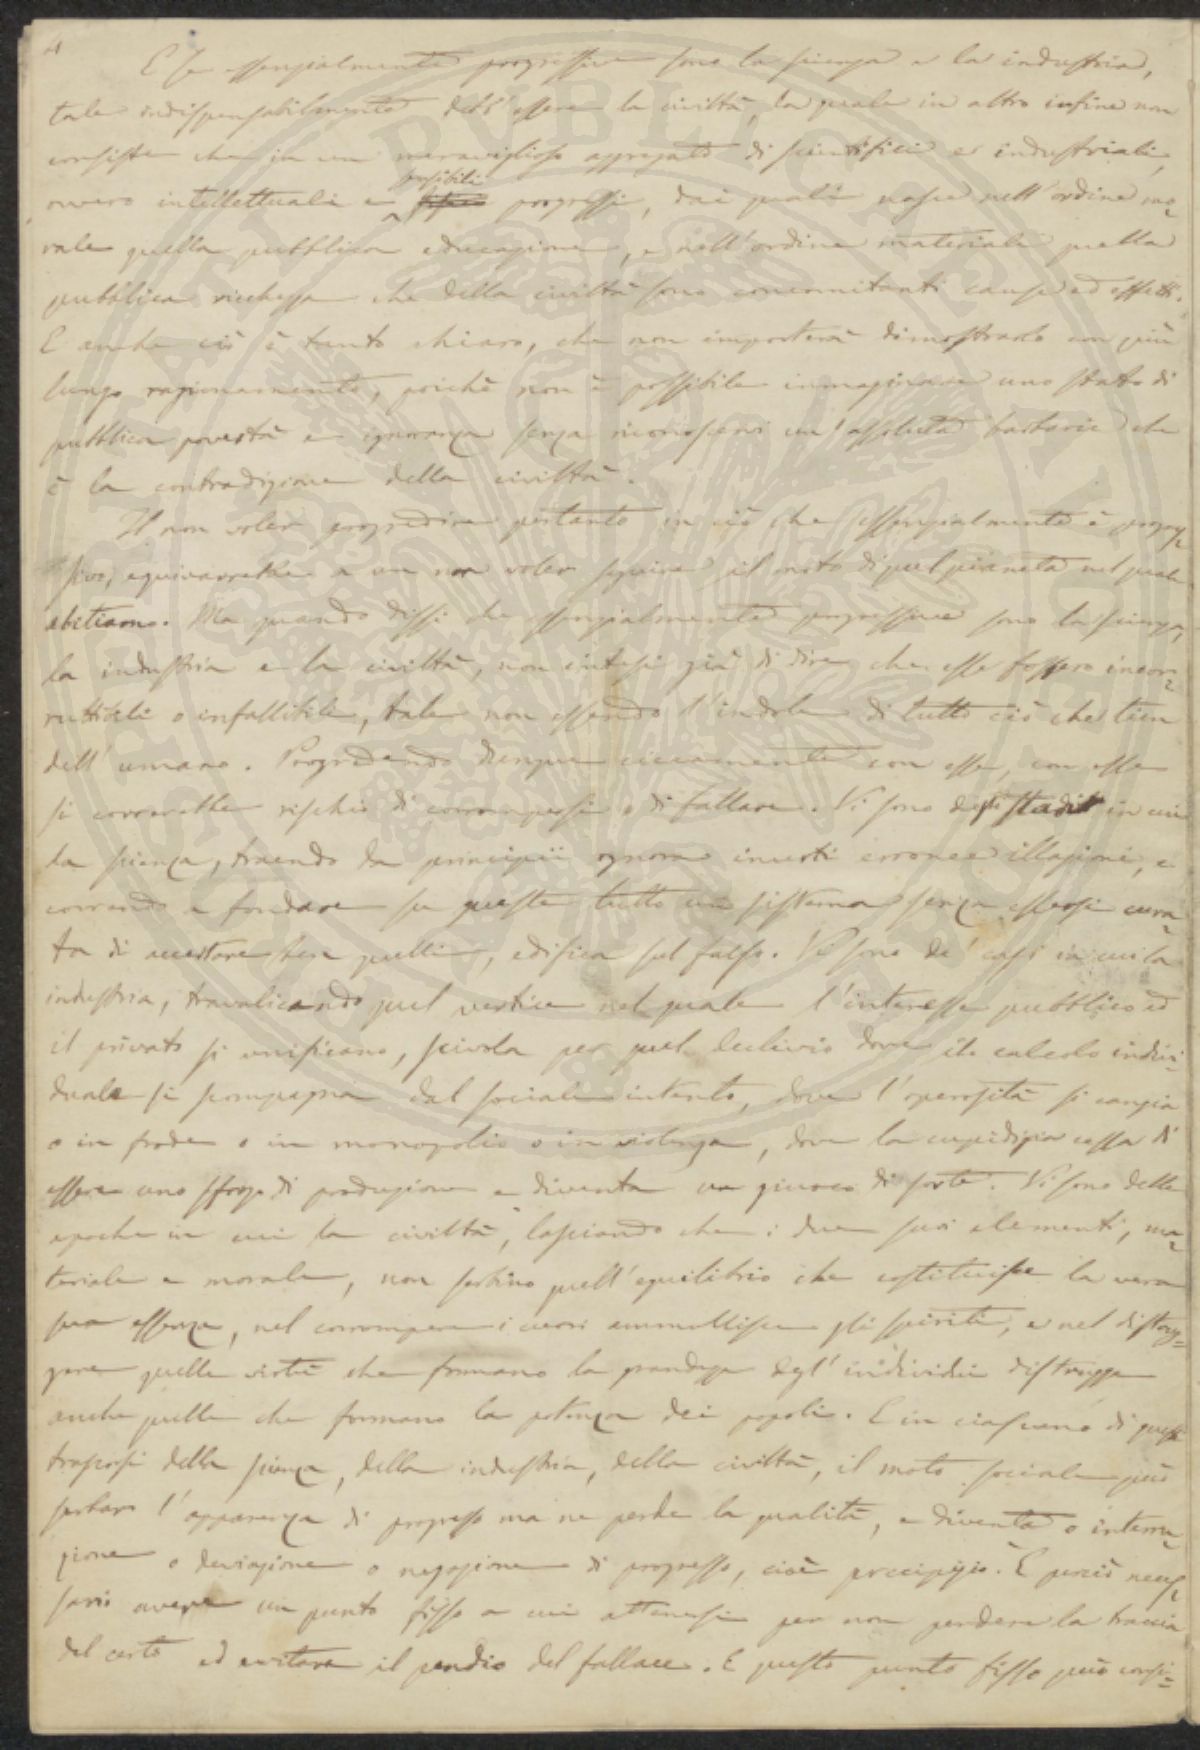 4
E se essenzialmente progressive sono la scienza e la industria,
tale indispensabilmente deb' essere la civiltà, la quale in altro infine non
consiste che in un maraviglioso aggregato di scientifici e industriali,
ovvero intellettuali e possibili progressi, dai quali nasce nell'ordine mo-
rale quella pubblica educazione, e nell'ordine materiale quella
pubblica ricchezza che della civiltà sono concomitanti cause ed effetti.
E anche ciò è tanto chiaro, che non importerà dimostrarlo con più
lungo ragionamento, poichè non è possibile immaginare uno stato di
pubblica povertà e ignoranza senza riconoscervi un'assoluta barbarie che
è la contradizione della civiltà.
Il non voler progredire pertanto in ciò che essenzialmente è progres-
sivo, equivarrebbe a un non voler seguire il moto di quel pianeta nel quale
abitiamo. Ma quando dissi che essenzialmente progressive sono la scienza,
la industria e la civiltà, non intesi già di dire che esse fossero incor-
ruttibili o infallibili, tale non essendo l'indole di tutto ciò che tien
dell'umano. Progredendo dunque ciecamente con esse, con esse
si correrebbe rischio di corrompersi o di fallare. Vi sono degli stadii in cui
la scienza, traendo da principii ognora incerti erronee illazioni, e
correndo a fondare su queste tutto un sistema senza essersi cura-
ta di accertare ben quelli, edifica sul falso. Vi sono de' casi in cui la
industria, travalicando quel vertice nel quale l'interesse pubblico ed
il privato si unificano, scivola per quel declivio dove il calcolo indivi-
duale si scompagna dal sociale intento, dove l'operosità si cangia
o in frode o in monopolio o in violenza, dove la cupidigia cessa di
essere uno sforzo di produzione e diventa un giuoco di sorte. Vi sono delle
epoche in cui la civiltà, lasciando che i due suoi elementi, ma-
teriale e morale, non serbino quell'equilibrio che costituisce la vera
sua essenza, nel corrompere i cuori ammollisce gli spiriti, e nel distrug-
gere quelle virtù che formano la grandezza degl'individui distrugge
anche quelle che formano la potenza dei popoli. E in ciascuno di questi
trascorsi della scienza, della industria, della civiltà, il moto sociale può
serbare l'apparenza di progresso ma ne perde la qualità, e diventa o interru-
zione o deviazione o negazione di progresso, cioè precipizio. È perciò neces-
sario avere un punto fisso a cui attenersi per non perdere la traccia
del certo ed evitare il pendio del fallace. E questo punto fisso può consi-